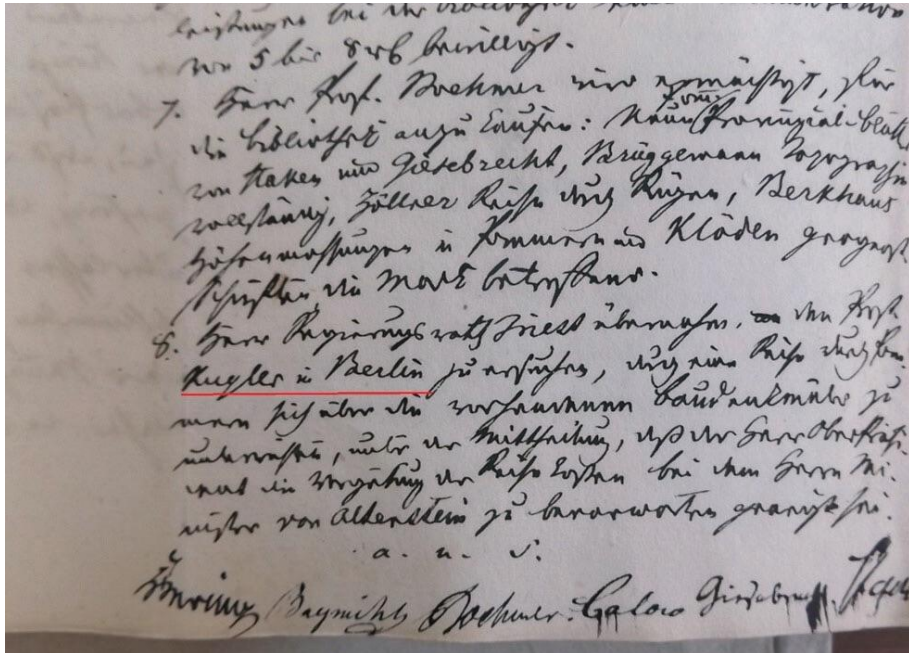 leistungen bei der
von 5 bis 8 rℓ bewilligt.
7. Herr Prof. Boehmer wird ermächtigt, für
die Bibliothek anzukaufen: Neue Pom. Provinzial-blätt.
von Haken und Giesebrecht, Brüggemann Topographie
vollständig, Zöllner Reise durch Rügen, Berkhaus
Höhenmessungen in Pommern und Klöden geogn.
Schriften die Mark betreffend.
8. Herr Regierungsrath Triest übernahm, den Prof.
Kugler in Berlin zu ersuchen, durch eine Reise durch Pom-
mern sich über die vorhandenen Baudenkmäler zu
unterrichten, unter der Mittheilung, daß der Herr Oberpräsi-
dent die Vergütung der Reisekosten bei dem Herrn Mi-
nister von Altenstein zu bevorworten geneigt sei.
a. u. s.
Hering Boehmer. Calow Giesebrecht